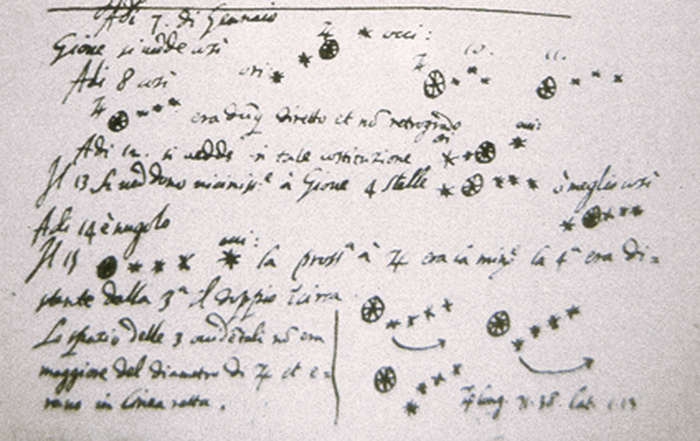 Adi 7. di Gennaio
Gione si vedde così ori: ♃ occ:
Adi 8 così ♃ 10. 11.
♃ era dūq diretto et nō retrogrado
Adi 12. si vedde in tale costituzione ori: occ:
Il 13 si veddono vicinissᵉ à Gione 4 stelle ò meglio così
Adi 14 è nugolo
Il 15 occ: la prossᵃ à ♃ era la minᵉ la 4ᵃ era di=
stante dalla 3ᵃ il doppio circa
Lo spazio delle 3 occidētali nō era
maggiore del diametro di ♃ et e=
rano in linea retta.
♃ long. 71.38 lat. 1.13